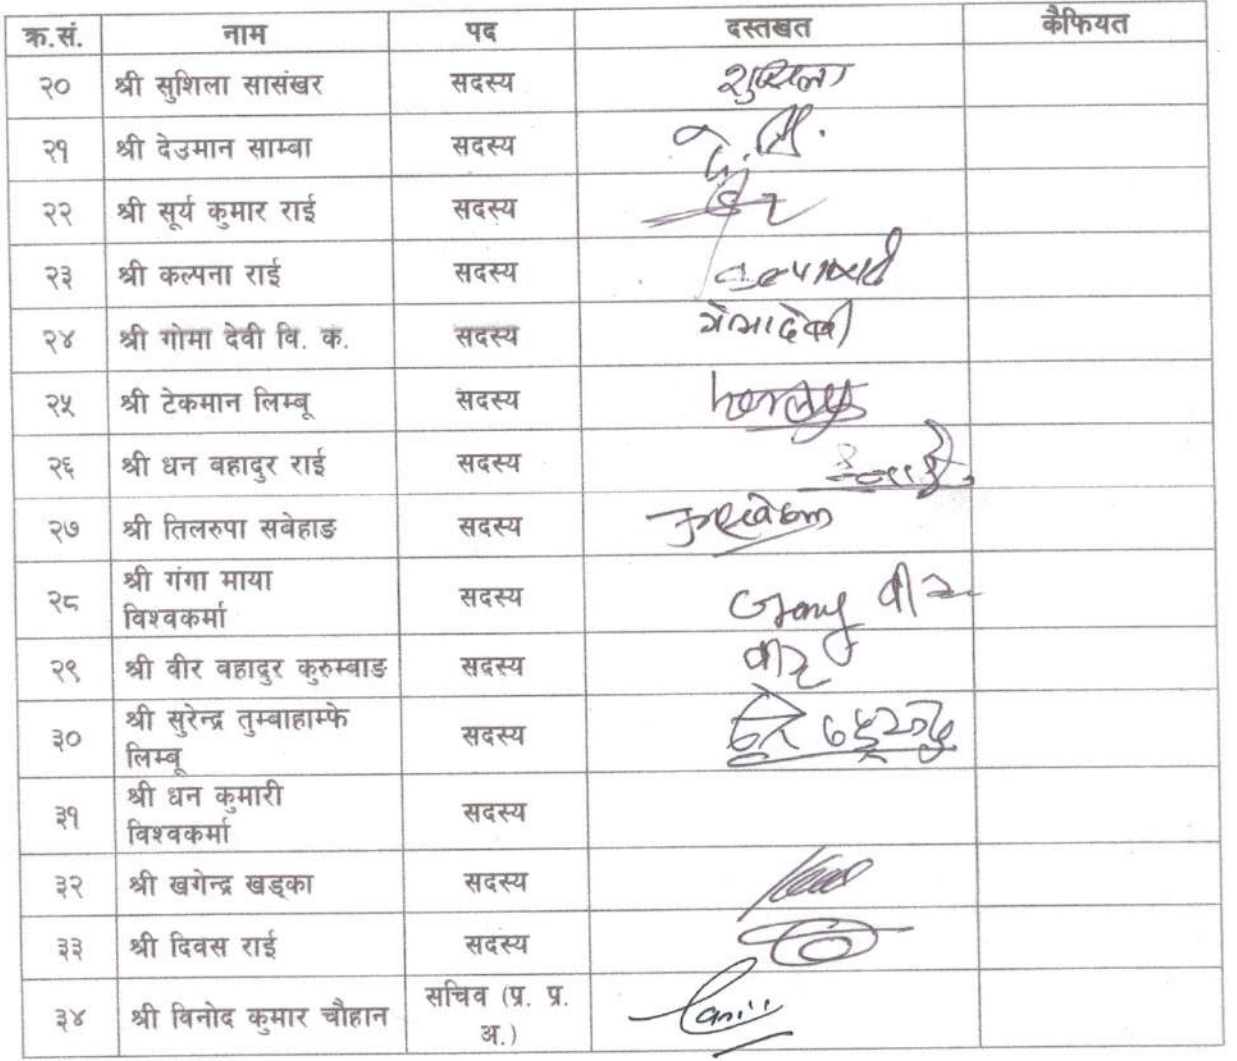 क्र.सं. नाम पद दस्तखत कैफियत
२० श्री सुशिला सासंखर सदस्य सुशिला
२१ श्री देउमान साम्बा सदस्य
२२ श्री सूर्य कुमार राई सदस्य
२३ श्री कल्पना राई सदस्य
२४ श्री गोमा देवी वि. क. सदस्य गोमादेवी
२५ श्री टेकमान लिम्बू सदस्य
२६ श्री धन बहादुर राई सदस्य
२७ श्री तिलरुपा सबेहाङ सदस्य
२८ श्री गंगा माया
विश्वकर्मा सदस्य
२९ श्री वीर बहादुर कुरुम्बाङ सदस्य
३० श्री सुरेन्द्र तुम्बाहाम्फे
लिम्बू सदस्य
३१ श्री धन कुमारी
विश्वकर्मा सदस्य
३२ श्री खगेन्द्र खड्का सदस्य
३३ श्री दिवस राई सदस्य
३४ श्री विनोद कुमार चौहान सचिव (प्र. प्र.
अ.)